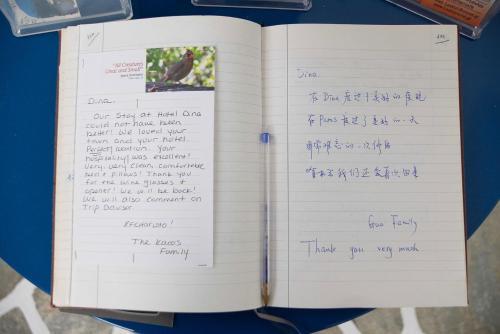 "All Creatures
Great and Small"
Dina,
Our Stay at Hotel Dina
could not have been
better! We loved your
town and your hotel.
Perfect location. Your
hospitality was excellent!
Very, very clean, comfortable
bed & pillows! Thank you
for the wine glasses &
opener! We will be back!
We will also comment on
Trip Advisor.
EFCHARISTO!
The Kacos
Family
Dina
在Dina 度过了美好的度晚
在Paros 度过了美好的一天
非常难忘的一次体验
我们还会再
Guo Family
Thank you very much